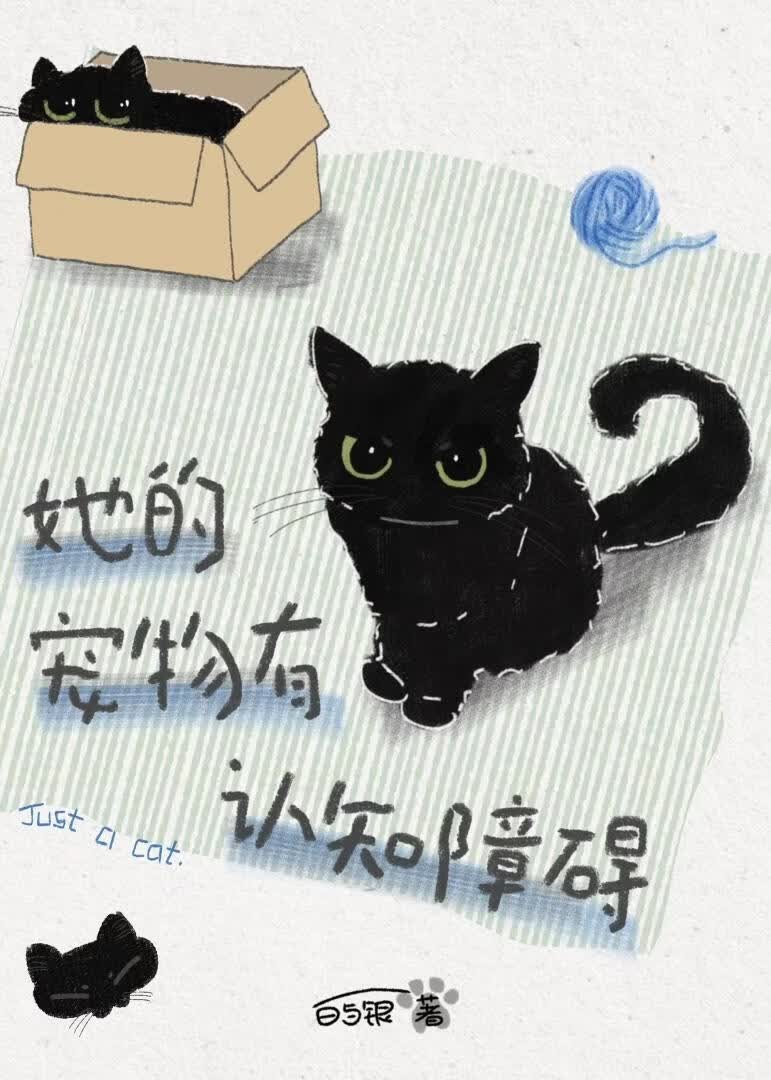 她的
宠物有
认知障碍
Just a cat.
白与银 著